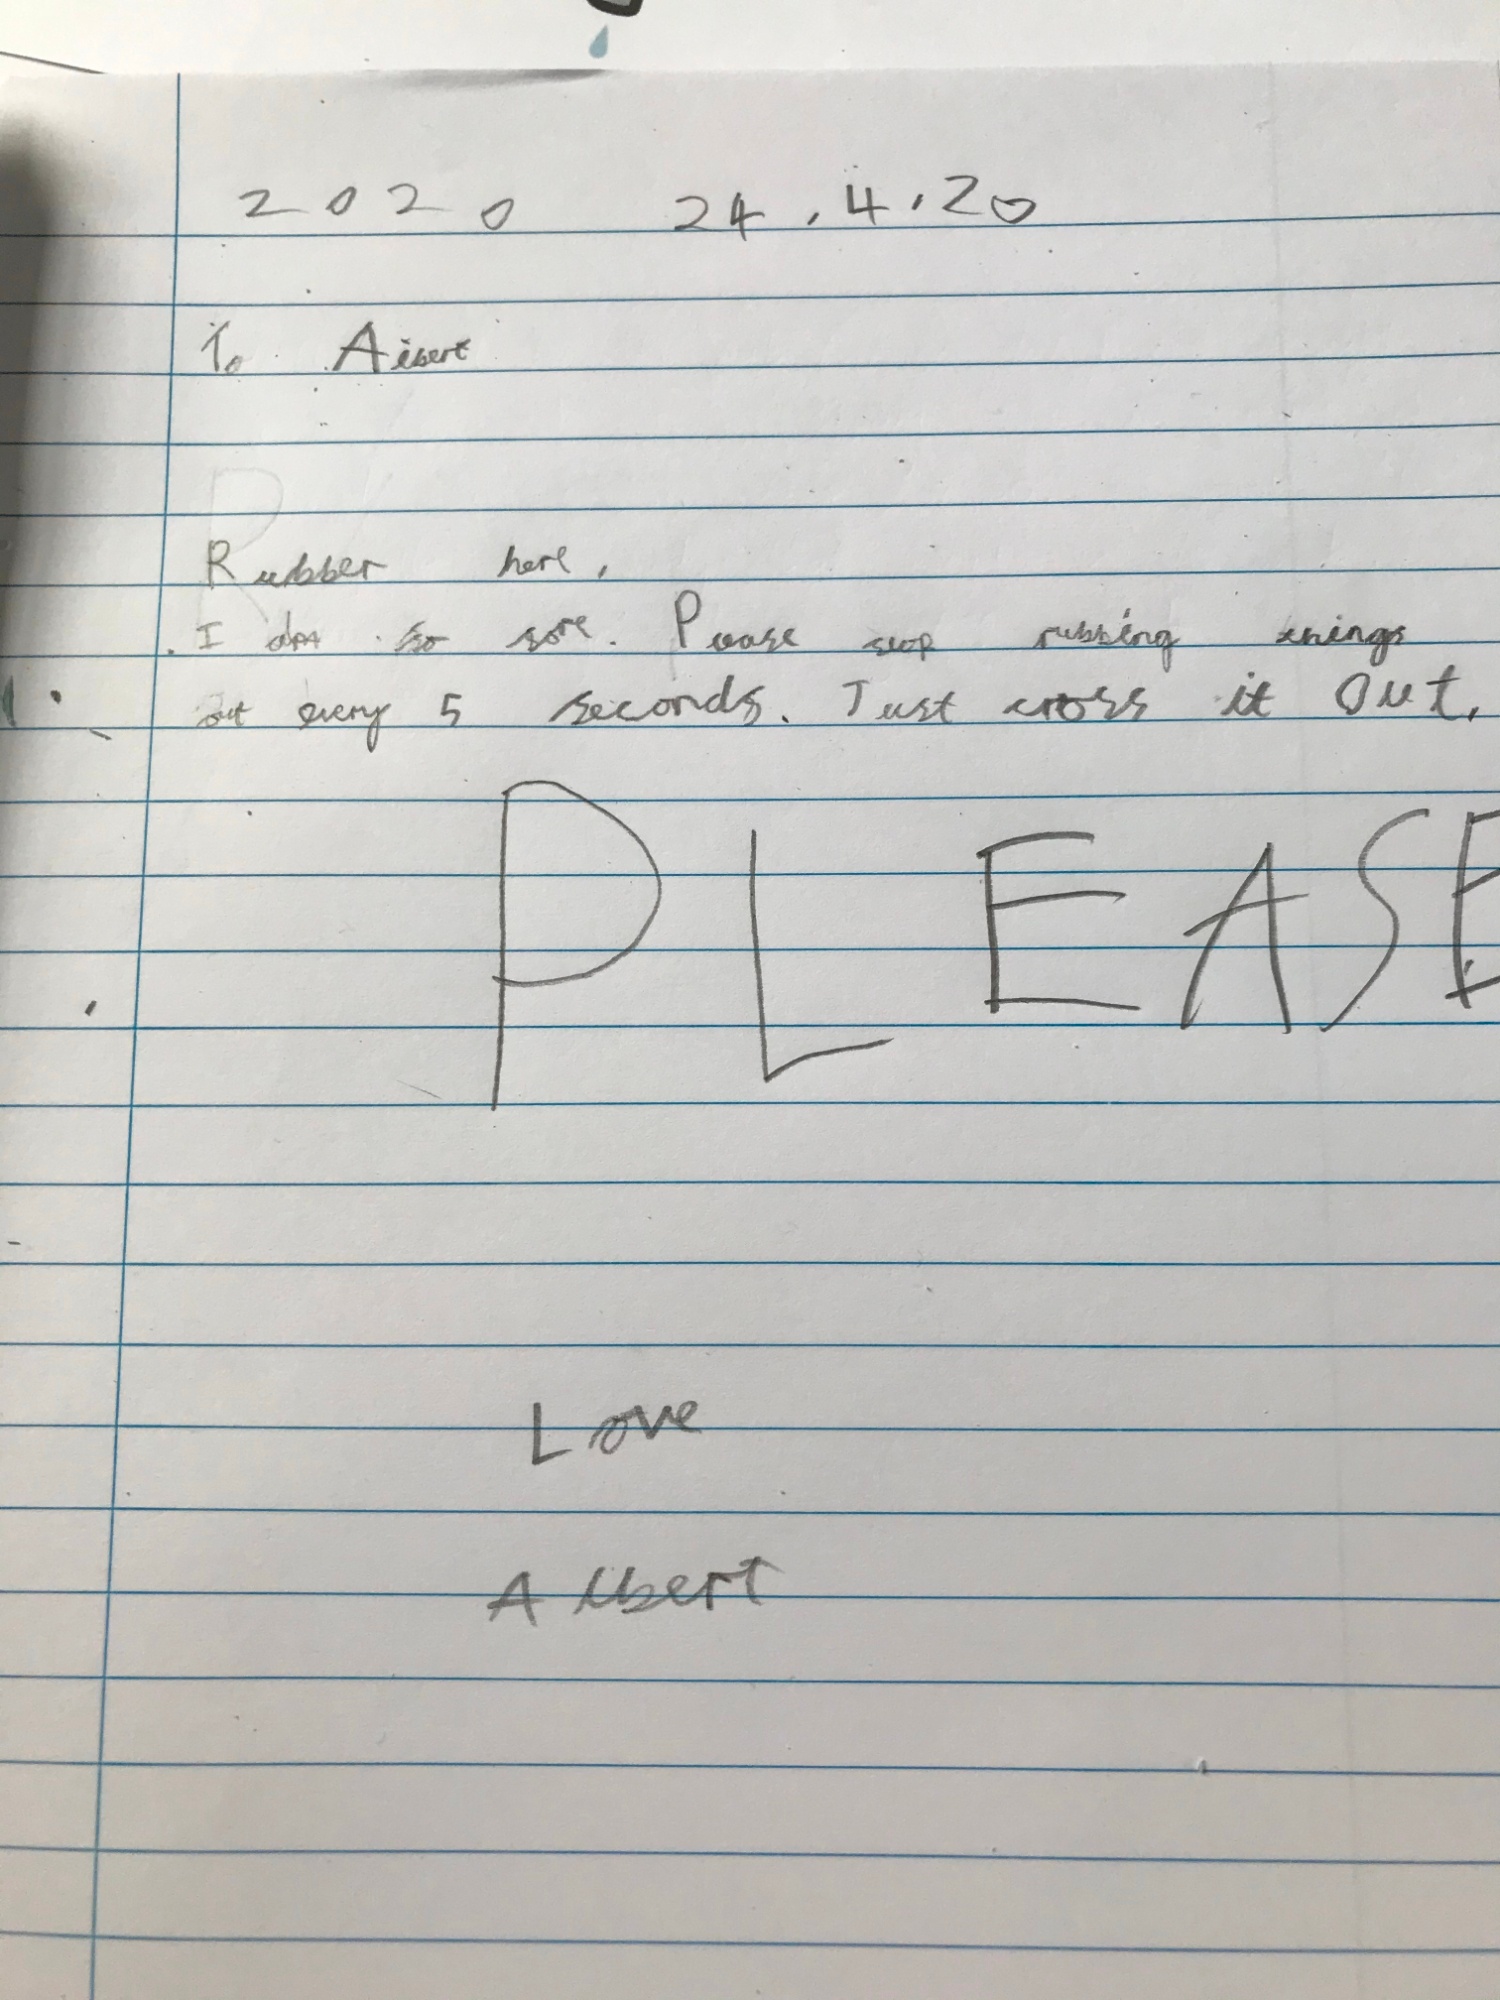 2020 24.4.20
To Albert
Rubber here,
I am so sore. Please stop rubbing things
out every 5 seconds. Just cross it out.
PLEASE
Love
Albert